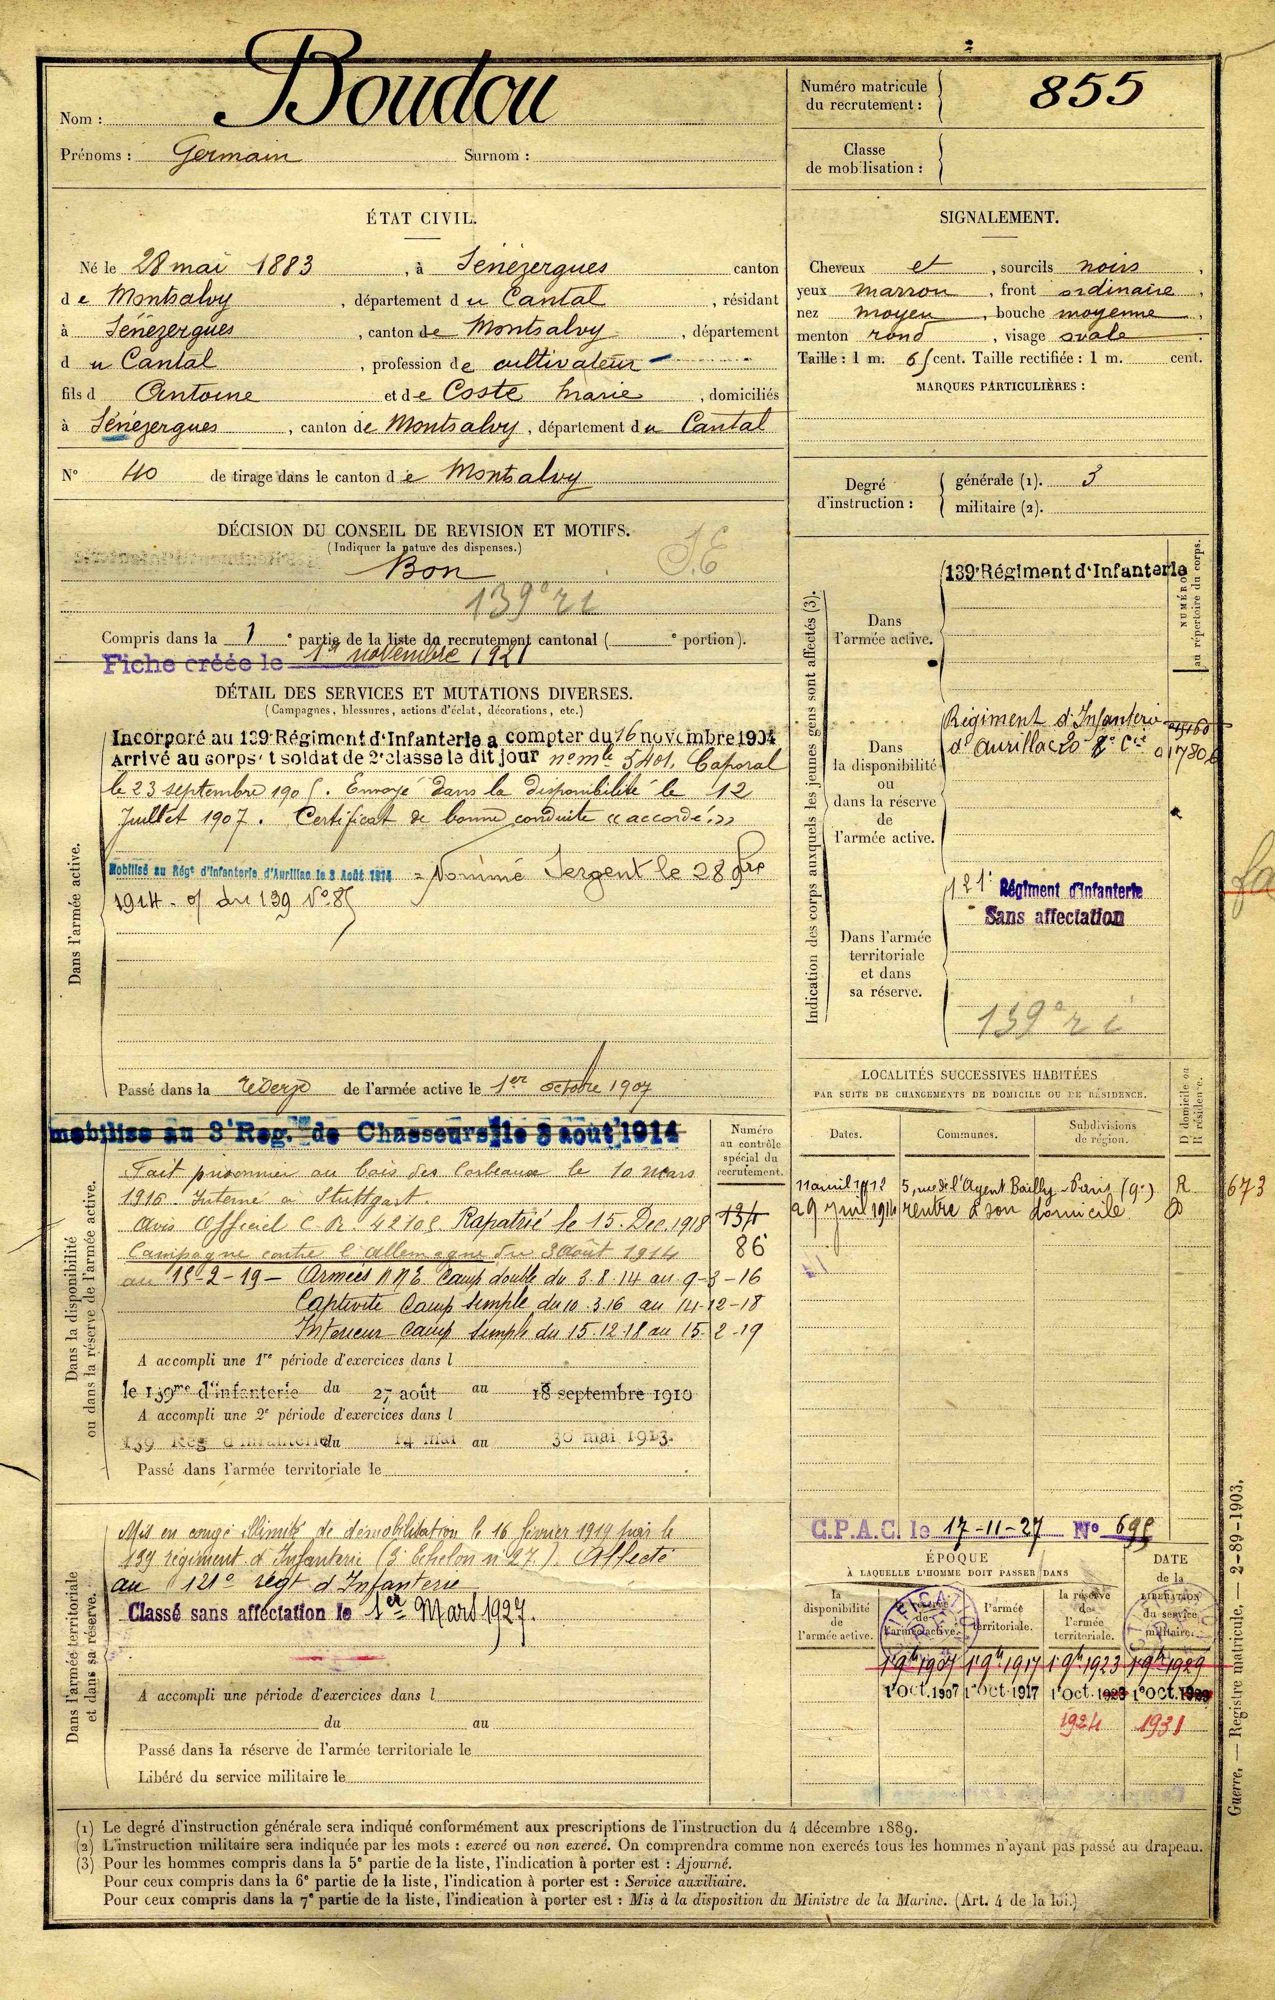 Nom : Boudou
Prénoms : Germain Surnom :
Numéro matricule
du recrutement : 855
Classe
de mobilisation :
ÉTAT CIVIL.
Né le 28 mai 1883, à Sénézergues canton
de Montsalvy, département du Cantal, résidant
à Sénézergues, canton de Montsalvy, département
du Cantal, profession de cultivateur
fils d Antoine et de Coste Marie, domiciliés
à Sénézergues, canton de Montsalvy, département du Cantal
N° 40 de tirage dans le canton de Montsalvy
SIGNALEMENT.
Cheveux et, sourcils noirs,
yeux marron, front ordinaire,
nez moyen, bouche moyenne,
menton rond, visage ovale.
Taille : 1 m. 65 cent. Taille rectifiée : 1 m. cent.
MARQUES PARTICULIÈRES :
Degré
d'instruction :
générale (1). 3
militaire (2).
DÉCISION DU CONSEIL DE REVISION ET MOTIFS.
(Indiquer la nature des dispenses.)
Bon
S.E
139e ri
Compris dans la 1e partie de la liste du recrutement cantonal ( e portion).
Fiche créée le 1er novembre 1921
DÉTAIL DES SERVICES ET MUTATIONS DIVERSES.
(Campagnes, blessures, actions d'éclat, décorations, etc.)
Dans l'armée active.
Incorporé au 139e Régiment d'Infanterie a compter du 16 novembre 1904
Arrivé au corps et soldat de 2e classe le dit jour n° mle 5401. Caporal
le 23 septembre 1905. Envoyé dans la disponibilité le 12
Juillet 1907. Certificat de bonne conduite « accordé. »
Mobilisé au Régt d'Infanterie d'Aurillac le 3 Août 1914 = Nommé Sergent le 28
1914 - du 139 N° 85
Passé dans la réserve de l'armée active le 1er octobre 1907
Indication des corps auxquels les jeunes gens sont affectés (3).
NUMÉRO
au répertoire du corps.
Dans
l'armée active.
139e Régiment d'Infanterie
Dans
la disponibilité
ou
dans la réserve
de
l'armée active.
Régiment d'Infanterie
d'Aurillac
01780
Dans l'armée
territoriale
et dans
sa réserve.
121e Régiment d'Infanterie
Sans affectation
139e ri
Dans la disponibilité
ou dans la réserve de l'armée active.
mobilisé au 3e Reg. de Chasseurs le 3 août 1914
Numéro
au contrôle
spécial du
recrutement.
134
86
Fait prisonnier au bois des Corbeaux le 10 mars
1916. Interné à Stuttgart.
Avis Officiel C R 42105 Rapatrié le 15. Dec. 1918
Campagne contre l'Allemagne du 3 Août 1914
au 15-2-19 - Armées N N E camp double du 3.8.14 au 9-3-16
Captivité Camp simple du 10.3.16 au 14-12-18
Intérieur camp simple du 15.12.18 au 15-2-19
A accompli une 1re période d'exercices dans l
le 139me d'infanterie du 27 août au 18 septembre 1910
A accompli une 2e période d'exercices dans l
139 Rég d'infanterie du 14 mai au 30 mai 1913.
Passé dans l'armée territoriale le
LOCALITÉS SUCCESSIVES HABITÉES
PAR SUITE DE CHANGEMENTS DE DOMICILE OU DE RÉSIDENCE.
Dates. Communes. Subdivisions
de région.
D domicile ou
R résidence.
11 avril 1912 5, rue de l'Agent Bailly - Paris (9e) R 673
29 juil 1914 rentre à son domicile D
C.P.A.C. le 17-11-27 N° 695
Dans l'armée territoriale
et dans sa réserve.
Mis en congé illimité de démobilisation le 16 février 1919 par le
139 régiment d'Infanterie (3e Echelon n° 27). Affecté
au 121e régt d'Infanterie
Classé sans affectation le 1er Mars 1927.
A accompli une période d'exercices dans l
du au
Passé dans la réserve de l'armée territoriale le
Libéré du service militaire le
ÉPOQUE
À LAQUELLE L'HOMME DOIT PASSER DANS
DATE
de la
LIBÉRATION
du service
militaire.
la
disponibilité
de
l'armée active.
la réserve
de
l'armée active.
l'armée
territoriale.
la réserve
de
l'armée
territoriale.
1er 9bre 1907 1er 9bre 1917 1er 9bre 1923 1er 9bre 1929
1er Oct. 1907 1er Oct. 1917 1er Oct. 1923 1er Oct. 1929
1924 1931
Guerre. — Registre matricule. — 2-89-1903.
(1) Le degré d'instruction générale sera indiqué conformément aux prescriptions de l'instruction du 4 décembre 1889.
(2) L'instruction militaire sera indiquée par les mots : exercé ou non exercé. On comprendra comme non exercés tous les hommes n'ayant pas passé au drapeau.
(3) Pour les hommes compris dans la 5e partie de la liste, l'indication à porter est : Ajourné.
Pour ceux compris dans la 6e partie de la liste, l'indication à porter est : Service auxiliaire.
Pour ceux compris dans la 7e partie de la liste, l'indication à porter est : Mis à la disposition du Ministre de la Marine. (Art. 4 de la loi.)